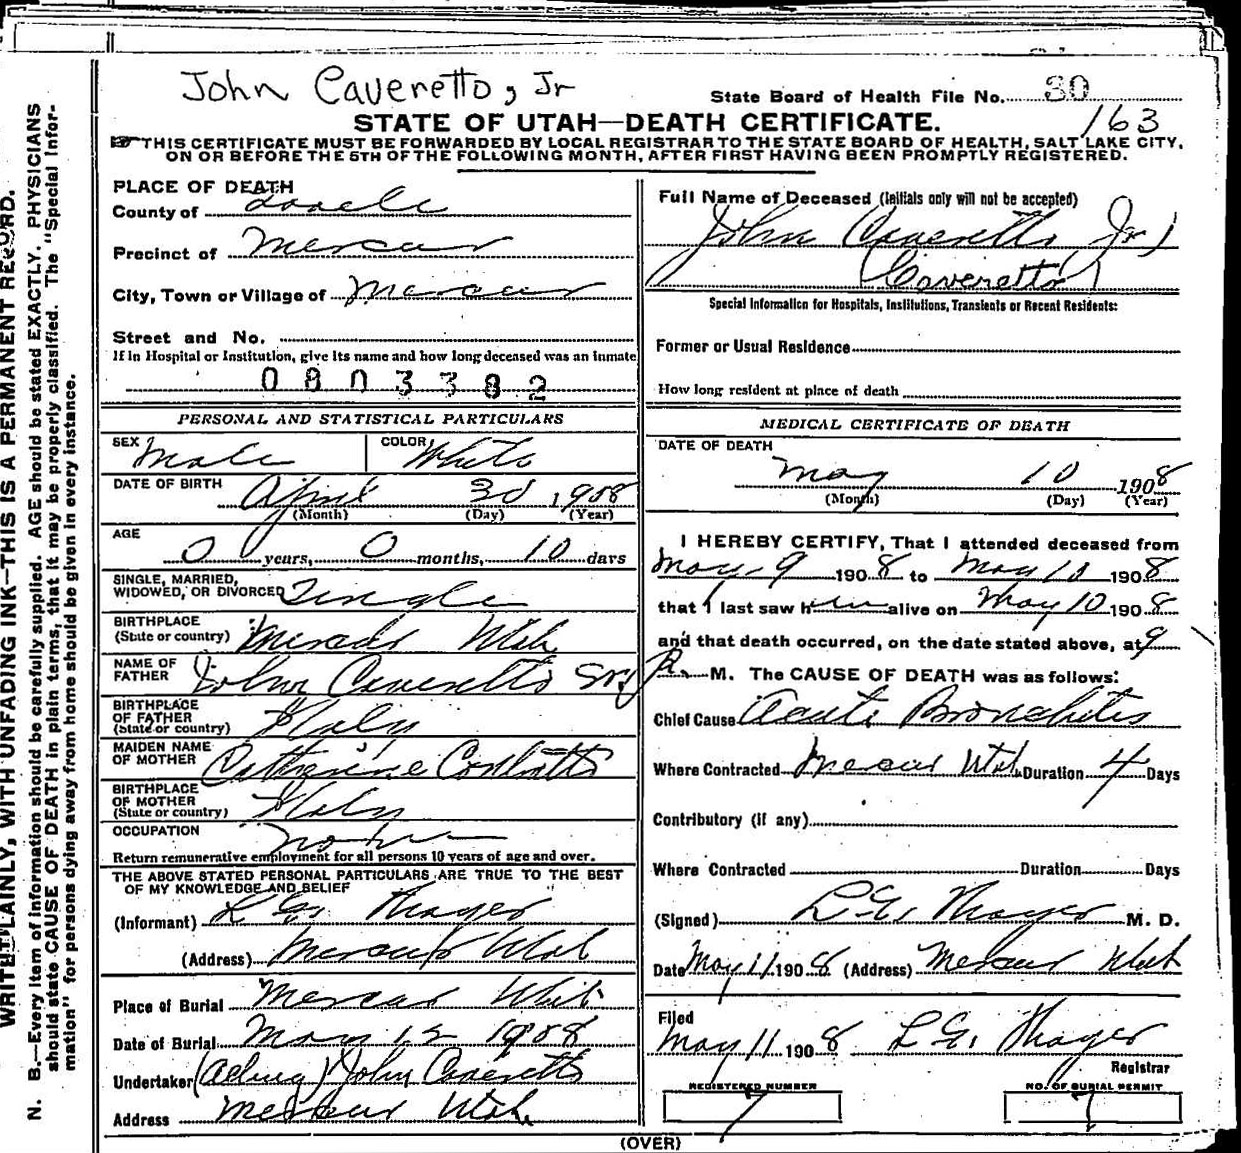 John Caveretto, Jr
State Board of Health File No. 30
163
STATE OF UTAH—DEATH CERTIFICATE.
THIS CERTIFICATE MUST BE FORWARDED BY LOCAL REGISTRAR TO THE STATE BOARD OF HEALTH, SALT LAKE CITY,
ON OR BEFORE THE 5TH OF THE FOLLOWING MONTH, AFTER FIRST HAVING BEEN PROMPTLY REGISTERED.
WRITE PLAINLY, WITH UNFADING INK—THIS IS A PERMANENT RECORD.
N. B.—Every item of information should be carefully supplied. AGE should be stated EXACTLY. PHYSICIANS
should state CAUSE OF DEATH in plain terms, that it may be properly classified. The "Special Infor-
mation" for persons dying away from home should be given in every instance.
PLACE OF DEATH
County of Tooele
Precinct of Mercur
City, Town or Village of Mercur
Street and No.
If in Hospital or Institution, give its name and how long deceased was an inmate
0803382
PERSONAL AND STATISTICAL PARTICULARS
SEX Male COLOR White
DATE OF BIRTH April 30, 1908
(Month) (Day) (Year)
AGE 0 years, 0 months, 10 days
SINGLE, MARRIED,
WIDOWED, OR DIVORCED Single
BIRTHPLACE
(State or country) Mercur Utah
NAME OF
FATHER John Caveretto Sr
BIRTHPLACE
OF FATHER
(State or country) Italy
MAIDEN NAME
OF MOTHER Catherine
BIRTHPLACE
OF MOTHER
(State or country) Italy
OCCUPATION
Return remunerative employment for all persons 10 years of age and over.
THE ABOVE STATED PERSONAL PARTICULARS ARE TRUE TO THE BEST
OF MY KNOWLEDGE AND BELIEF
(Informant) L G. Thayer
(Address) Mercur Utah
Place of Burial Mercur Utah
Date of Burial May 12 1908
Undertaker (Acting) John Caveretto
Address Mercur Utah
Full Name of Deceased (Initials only will not be accepted)
John Caveretto Jr)
(Caveretto)
Special Information for Hospitals, Institutions, Transients or Recent Residents:
Former or Usual Residence
How long resident at place of death
MEDICAL CERTIFICATE OF DEATH
DATE OF DEATH
May 10 1908
(Month) (Day) (Year)
I HEREBY CERTIFY, That I attended deceased from
May 9 1908 to May 10 1908
that I last saw him alive on May 10 1908
and that death occurred, on the date stated above, at 9
P. M. The CAUSE OF DEATH was as follows:
Chief Cause Acute Bronchitis
Where Contracted Mercur Utah Duration 4 Days
Contributory (if any)
Where Contracted Duration Days
(Signed) L. G. Thayer M. D.
Date May 11 1908 (Address) Mercur Utah
Filed
May 11 1908 L G. Thayer
Registrar
REGISTERED NUMBER
7
NO. OF BURIAL PERMIT
7
(OVER)